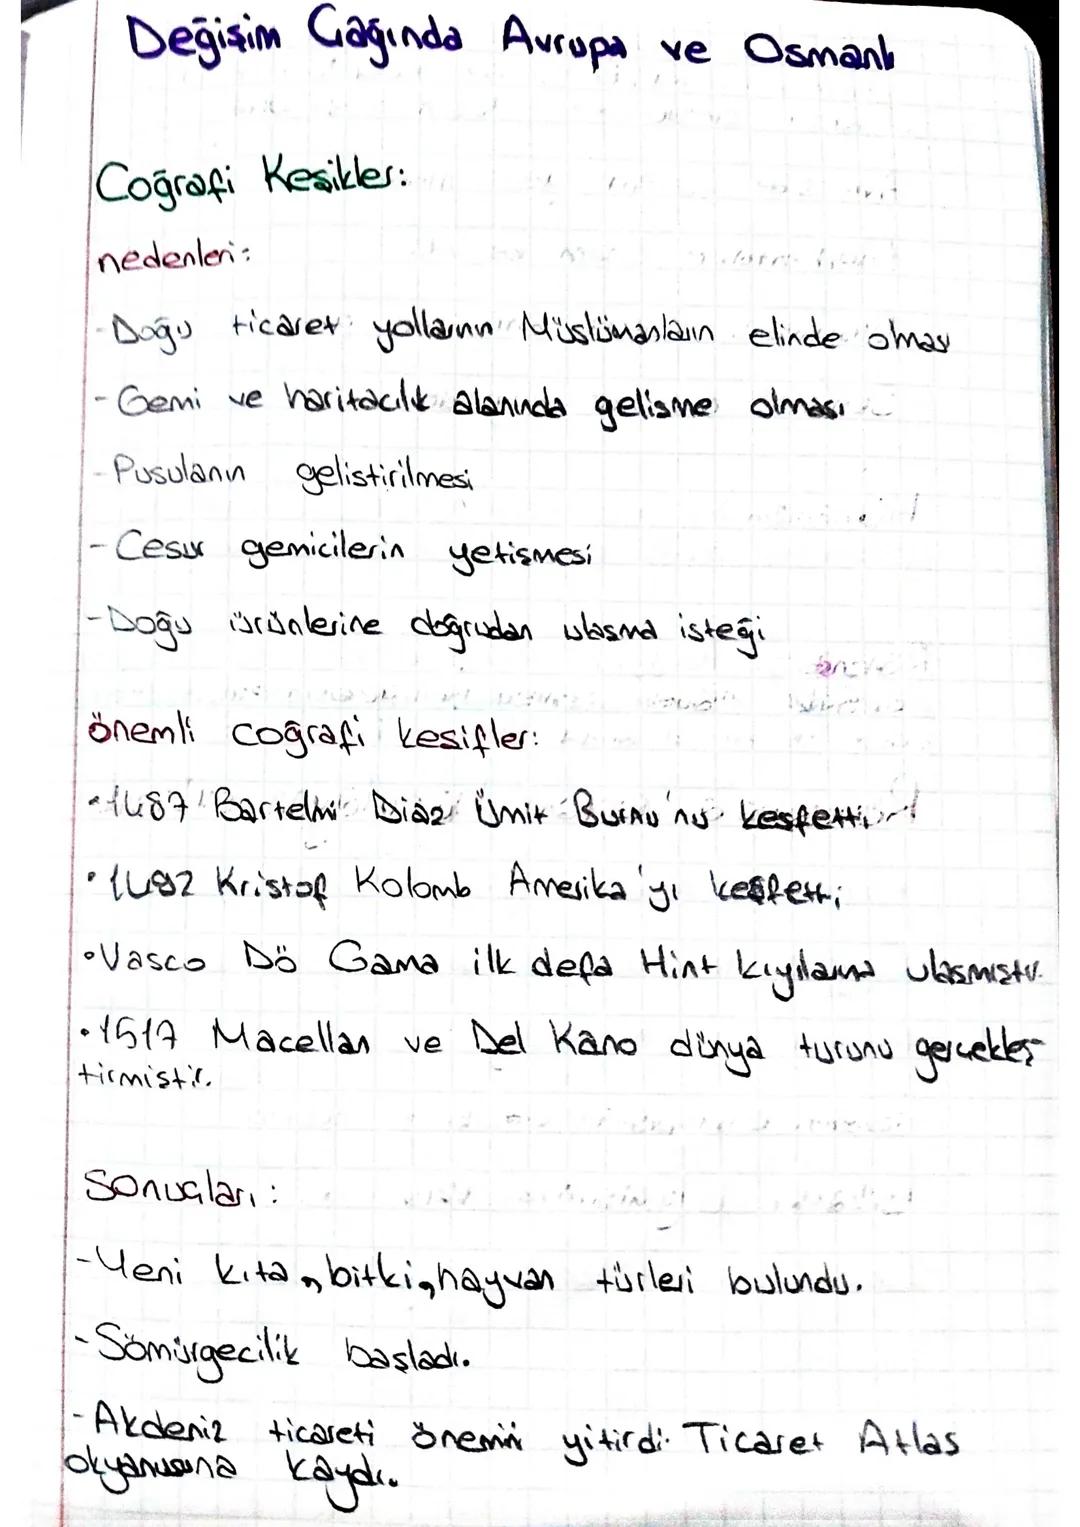 Değişim Çağında Avrupa ve Osmanlı
Coğrafi Keşikler:
nedenleri:
-Doğu ticaret yollarının Müslümanların elinde olması
-Gemi ve haritacılık alanında gelisme olması
-Pusulanın gelistirilmesi
-Cesur gemicilerin yetişmesi
-Doğu ürünlerine doğrudan ulasma isteği
önemli coğrafi kesifler:
•1487 Bartelmi Diaz Ümit Burnu'nu kesfetti
•1492 Kristof Kolomb Amerika'yı keşfetti
•Vasco Dö Gama ilk defa Hint kıyılarına ulasmıstır.
•1517 Macellan ve Del Kano dünya turunu gerçekleş-
tirmistir.
Sonuçları:
-Yeni kıta, bitki, hayvan türleri bulundu.
-Sömürgecilik başladı.
-Akdeniz ticareti önemini yitirdi. Ticaret Atlas
okyanusuna kaydı.